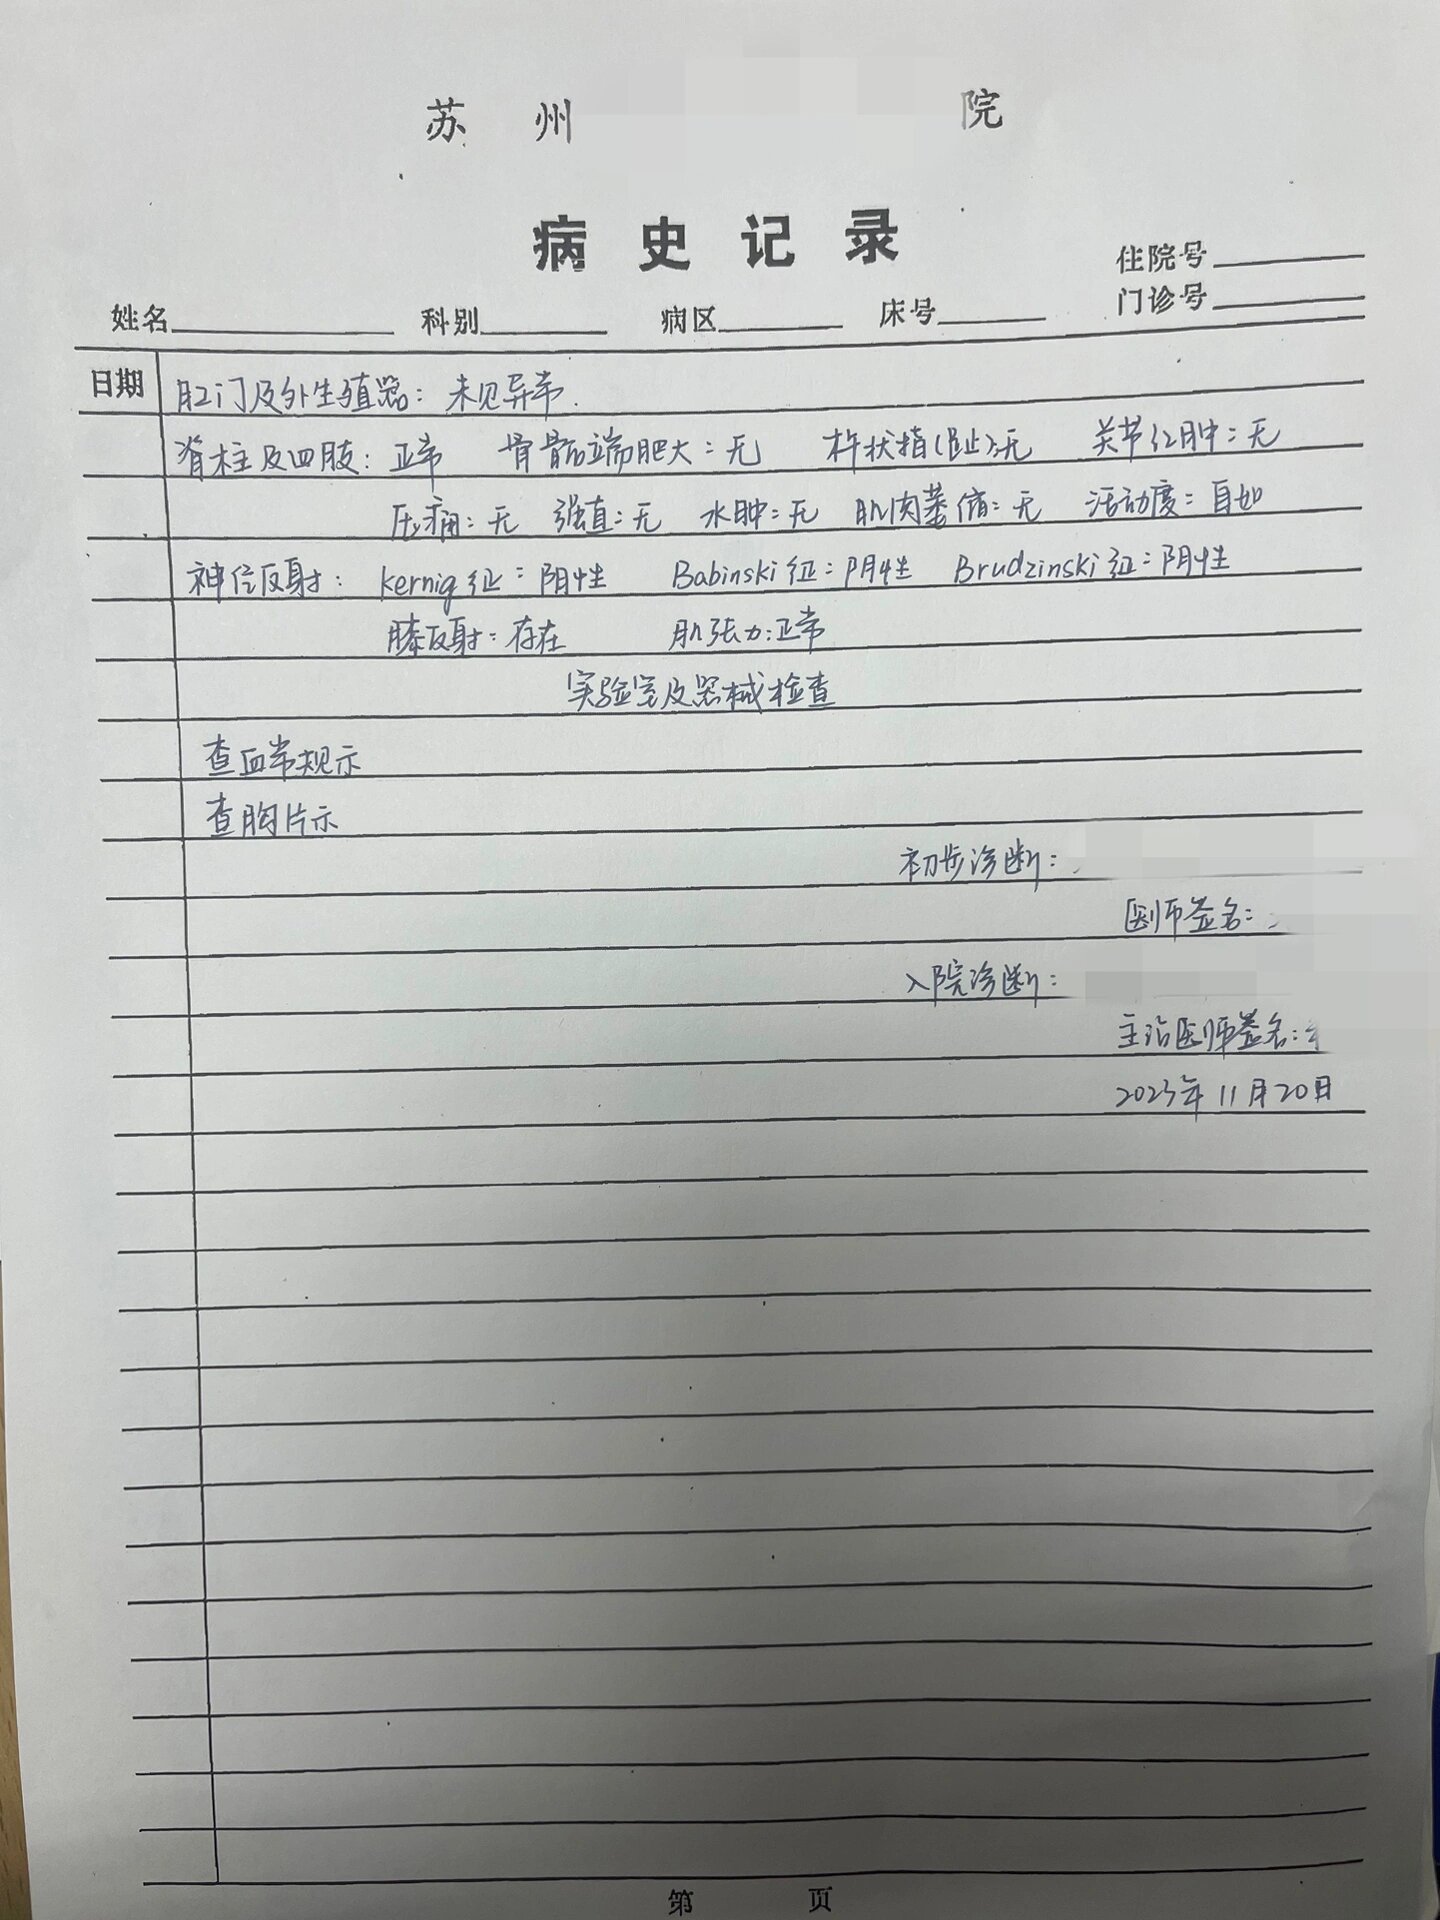 苏 州 院
病 史 记 录
住院号
门诊号
姓名 科别 病区 床号
日期 肛门及外生殖器：未见异常.
脊柱及四肢：正常 骨骺端肥大：无 杵状指(趾):无 关节红肿：无
压痛：无 强直：无 水肿：无 肌肉萎缩：无 活动度：自如
神经反射：Kernig征：阴性 Babinski征：阴性 Brudzinski征：阴性
膝反射：存在 肌张力:正常
实验室及器械检查
查血常规示
查胸片示
初步诊断：
医师签名：
入院诊断：
主治医师签名：
2023年11月20日
第 页